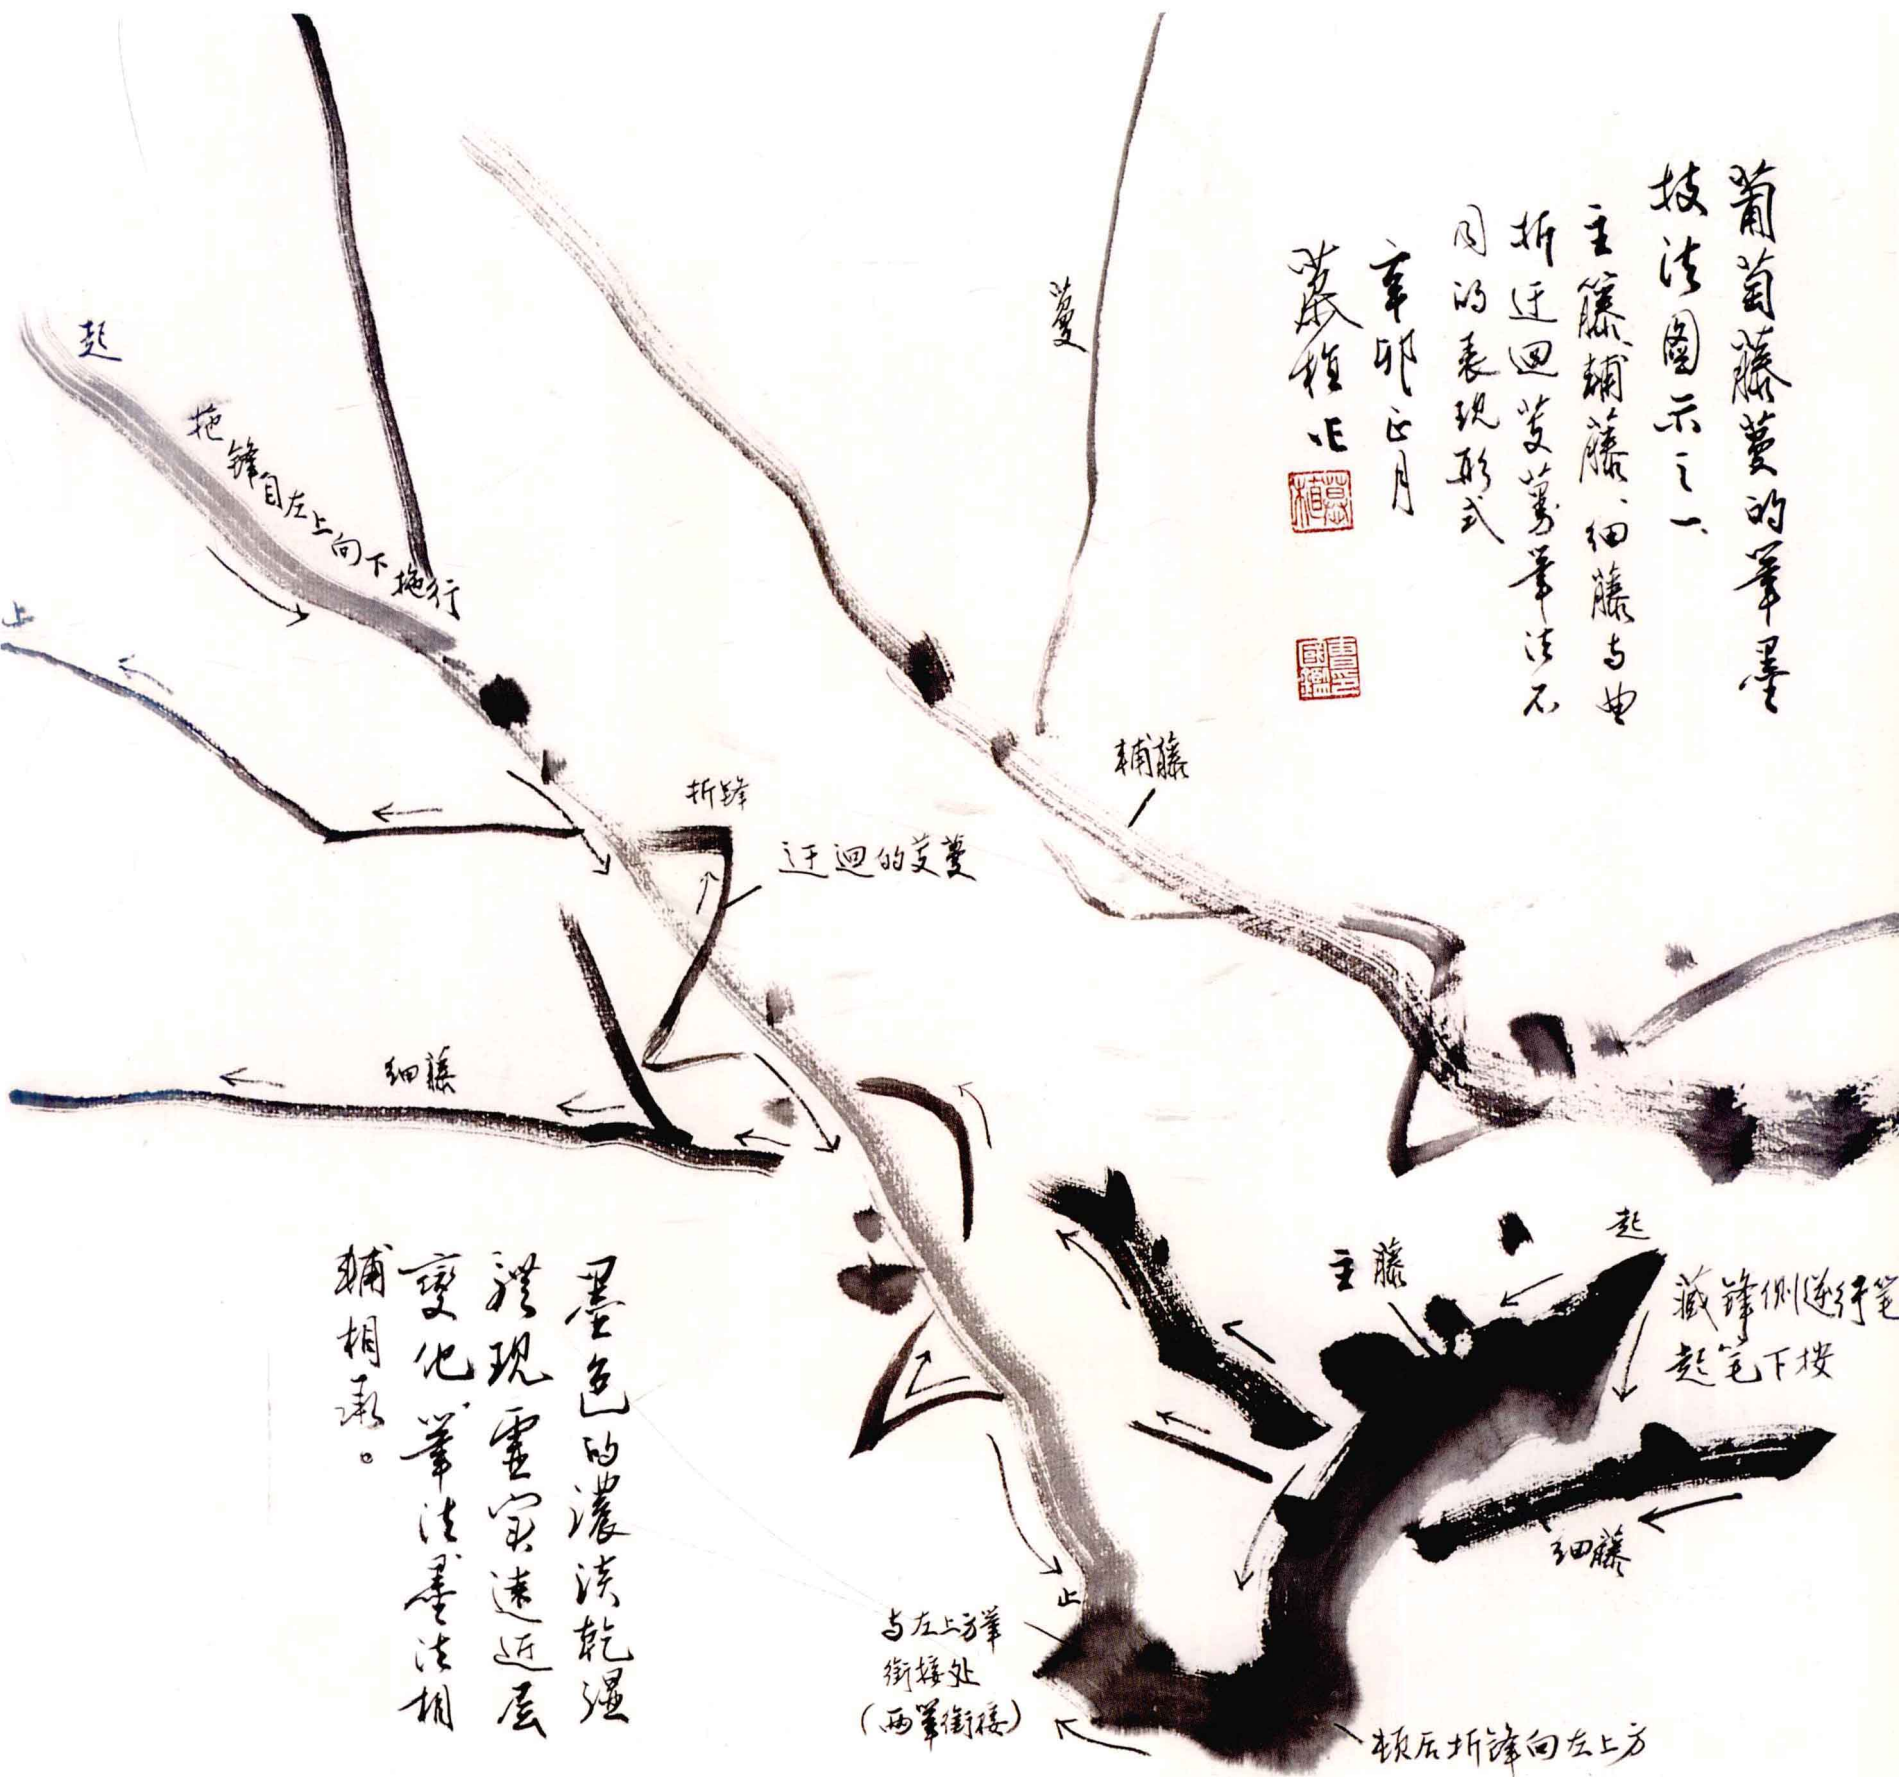 葡萄藤蔓的筆墨
技法圖示之一、
主籐、輔藤、细藤与曲
折迂迴芰蔓筆法不
同的表现形式
辛卯正月
慕植作
慕植
蔓
起
拖锋自左上向下拖行
止
折锋
迂迴的芰蔓
輔藤
细藤
主藤
起
藏锋侧逆行笔
起笔下按
细藤
止
与左上方筆
銜接处
(两筆銜接)
顿后折锋向左上方
墨色的濃淡乾濕
體现虚实遠近层
變化、筆法墨法相
輔相承。